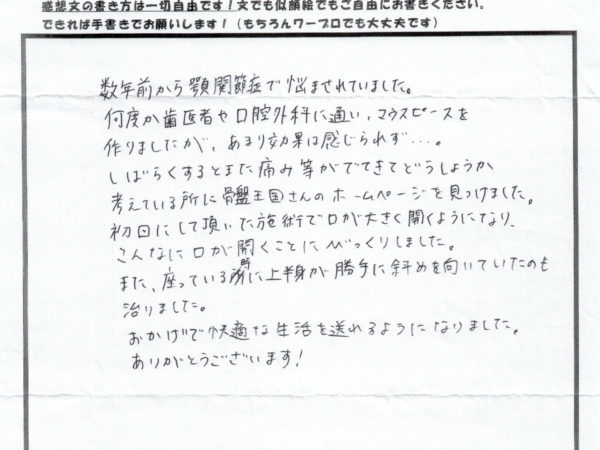 感想文の書き方は一切自由です!文でも似顔絵でもご自由にお書きください。
できれば手書きでお願いします!(もちろんワープロでも大丈夫です)
数年前から顎関節症で悩まされていました。
何度か歯医者や口腔外科に通い、マウスピースを
作りましたが、あまり効果は感じられず…。
しばらくするとまた痛み等がでてきてどうしようか
考えている所に骨盤王国さんのホームページを見つけました。
初回にして頂いた施術で口が大きく開くようになり、
こんなに口が開くことにびっくりしました。
また、座っている時に上半身が勝手に斜めを向いていたのも
治りました。
おかげで快適な生活を送れるようになりました。
ありがとうございます!